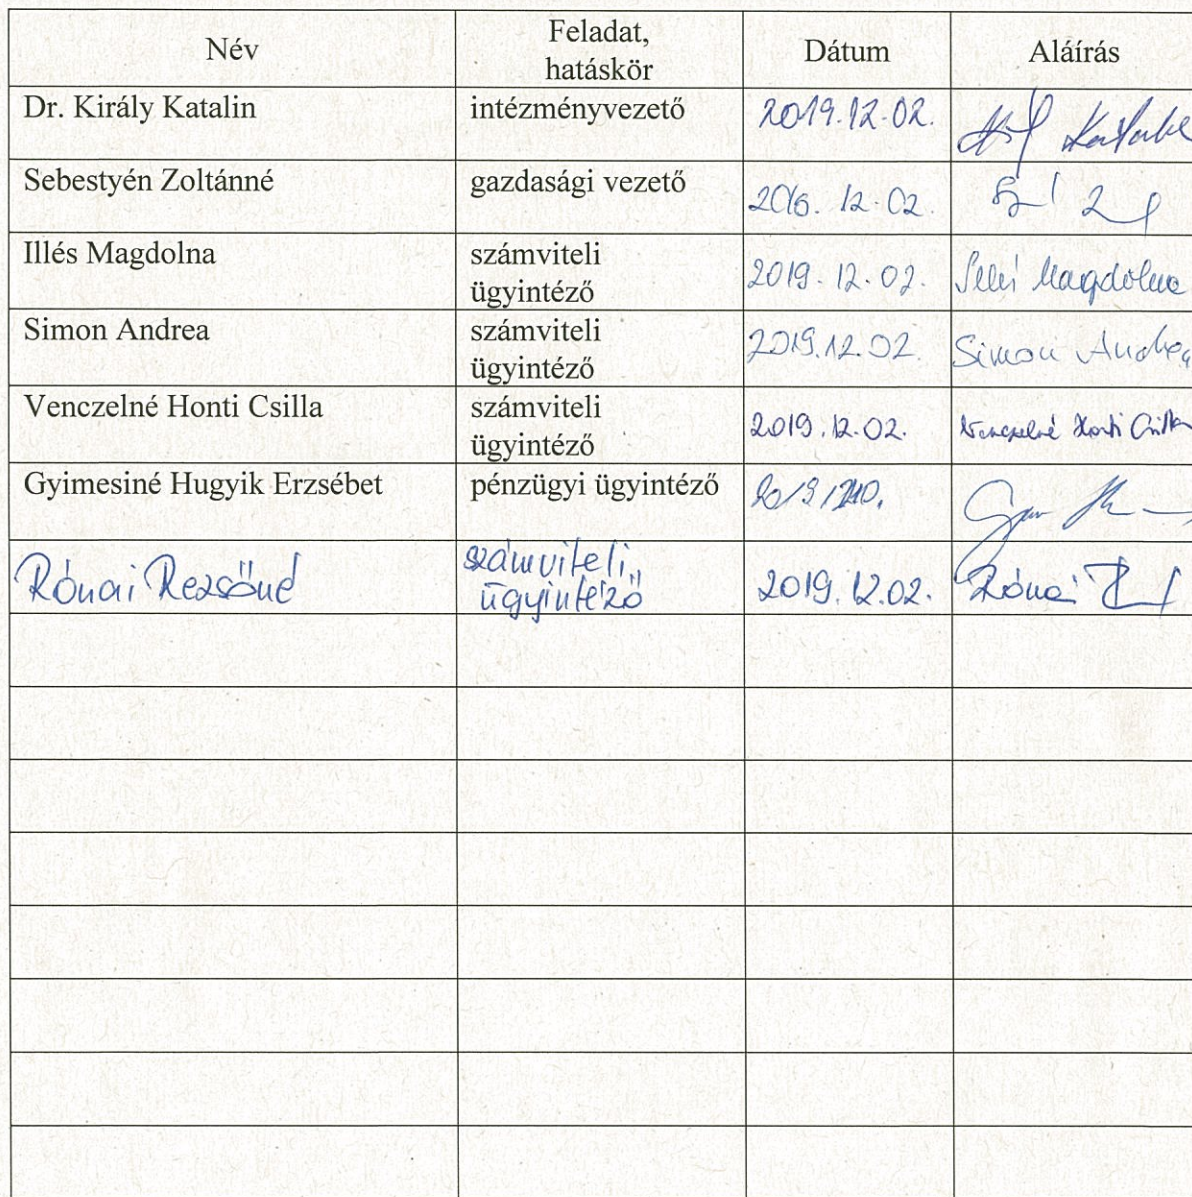 Név
Feladat,
hatáskör
Dátum
Aláírás
Dr. Király Katalin
intézményvezető
2019.12.02.
Katalin
Sebestyén Zoltánné
gazdasági vezető
2016. 12.02.
Illés Magdolna
számviteli
ügyintéző
2019. 12. 02.
Illés Magdolna
Simon Andrea
számviteli
ügyintéző
2019.12.02.
Simon Andrea
Venczelné Honti Csilla
számviteli
ügyintéző
2019.12.02.
Venczelné Honti Csilla
Gyimesiné Hugyik Erzsébet
pénzügyi ügyintéző
Rónai Rezsőné
számviteli
ügyintéző
2019.12.02.
Rónai